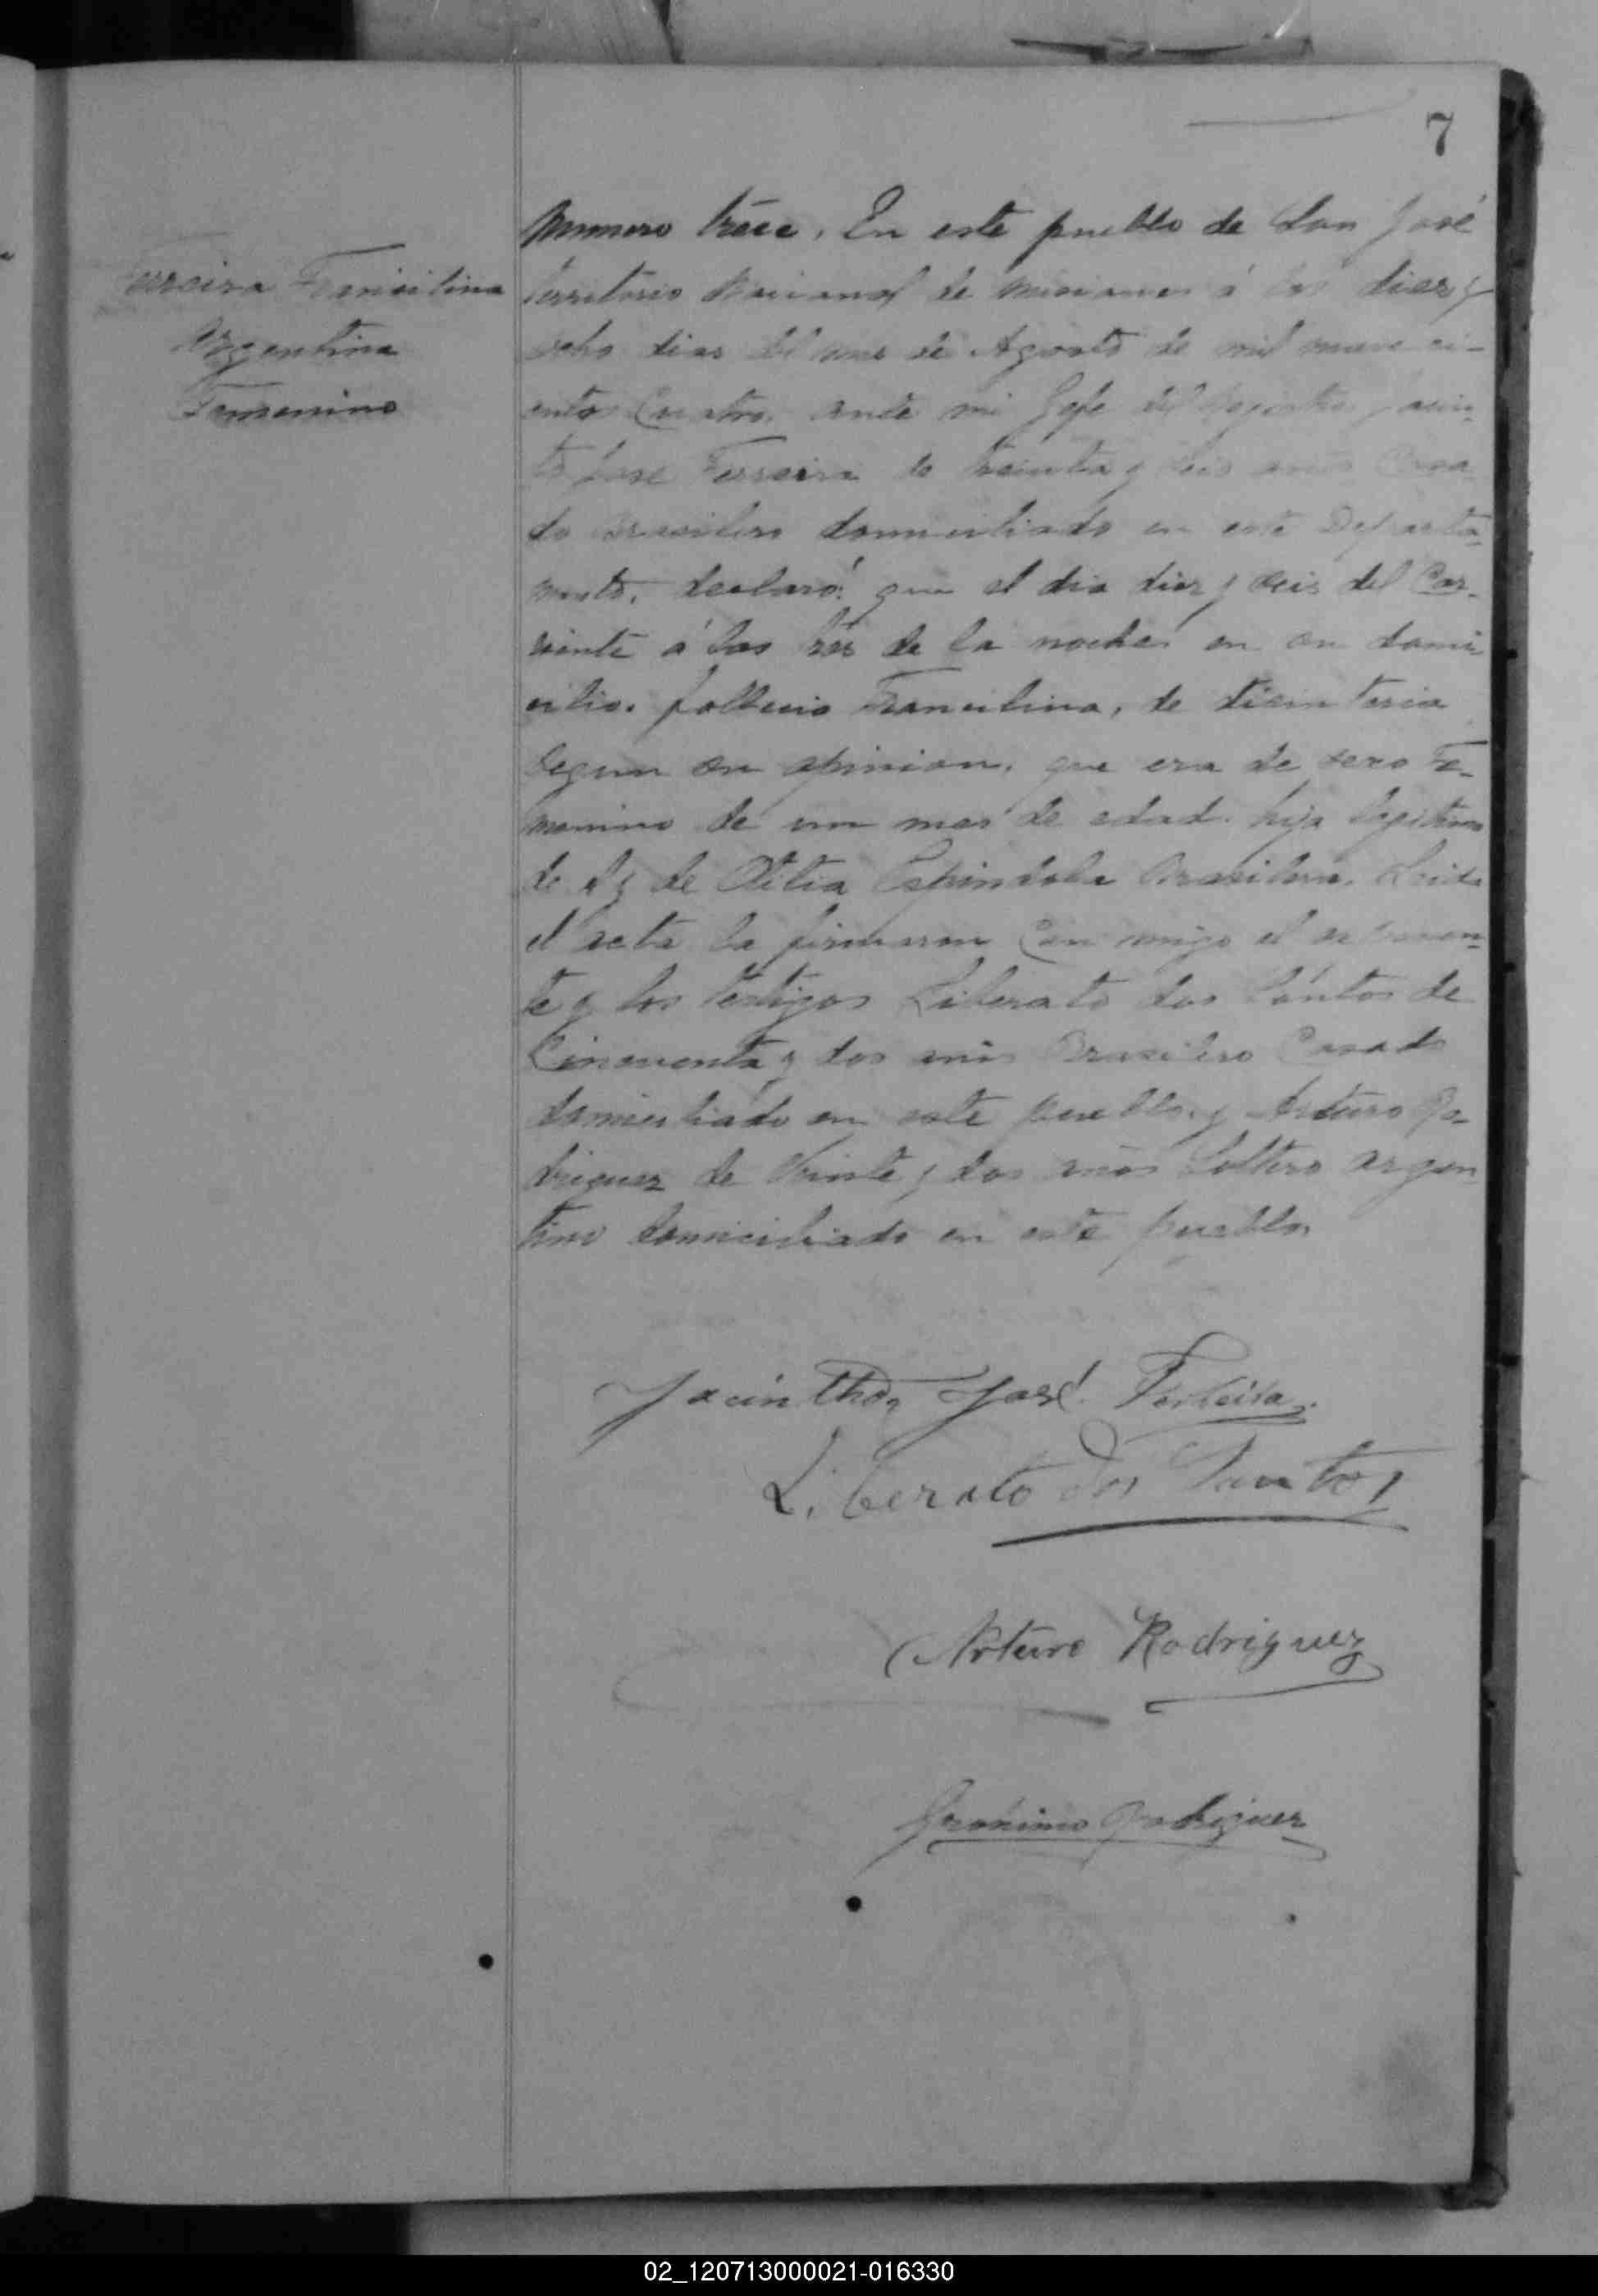 7
Ferreira Francilina
Argentina
Femenino
Numero trece. En este pueblo de San José
Territorio Nacional de Misiones á los diez y
ocho dias del mes de Agosto de mil nueve ci-
entos Cuatro, ante mi Gefe del Registro, Jacin-
to Jose Ferreira de treinta y seis años Casa
do Brasilero domiciliado en este Departa-
mento, declaró: que el dia diez y seis del Cor-
riente á las de la noche en su domi-
cilio. fallecio Francilina, de disinteria
Segun su opinion, que era de sexo Fe-
menino de un mes de edad. hija legitima
de el y de Otilia Espindola Brasilera. Leida
el acta la firmaron Con migo el exponen-
te y los testigos Liberato dos Santos de
Cincuenta y dos años Brasilero Casado
domiciliado en este pueblo. y Arturo Ro-
driguez de Veinte y dos años Soltero argen
tino domiciliado en este pueblo
Jacintho José Ferreira
Liberato dos Santos
Arturo Rodriguez
Geronimo Rodriguez
02_120713000021-016330